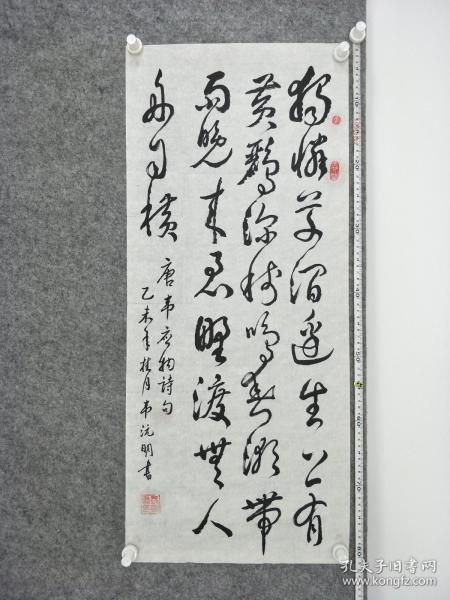 獨憐草澗邊生上有
黄鸝深樹鳴春潮帶
雨晚来急野渡無人
舟自横
唐韦应物詩句
乙未年桂月韦沅明書
孔夫子旧书网
www.kongfz.com